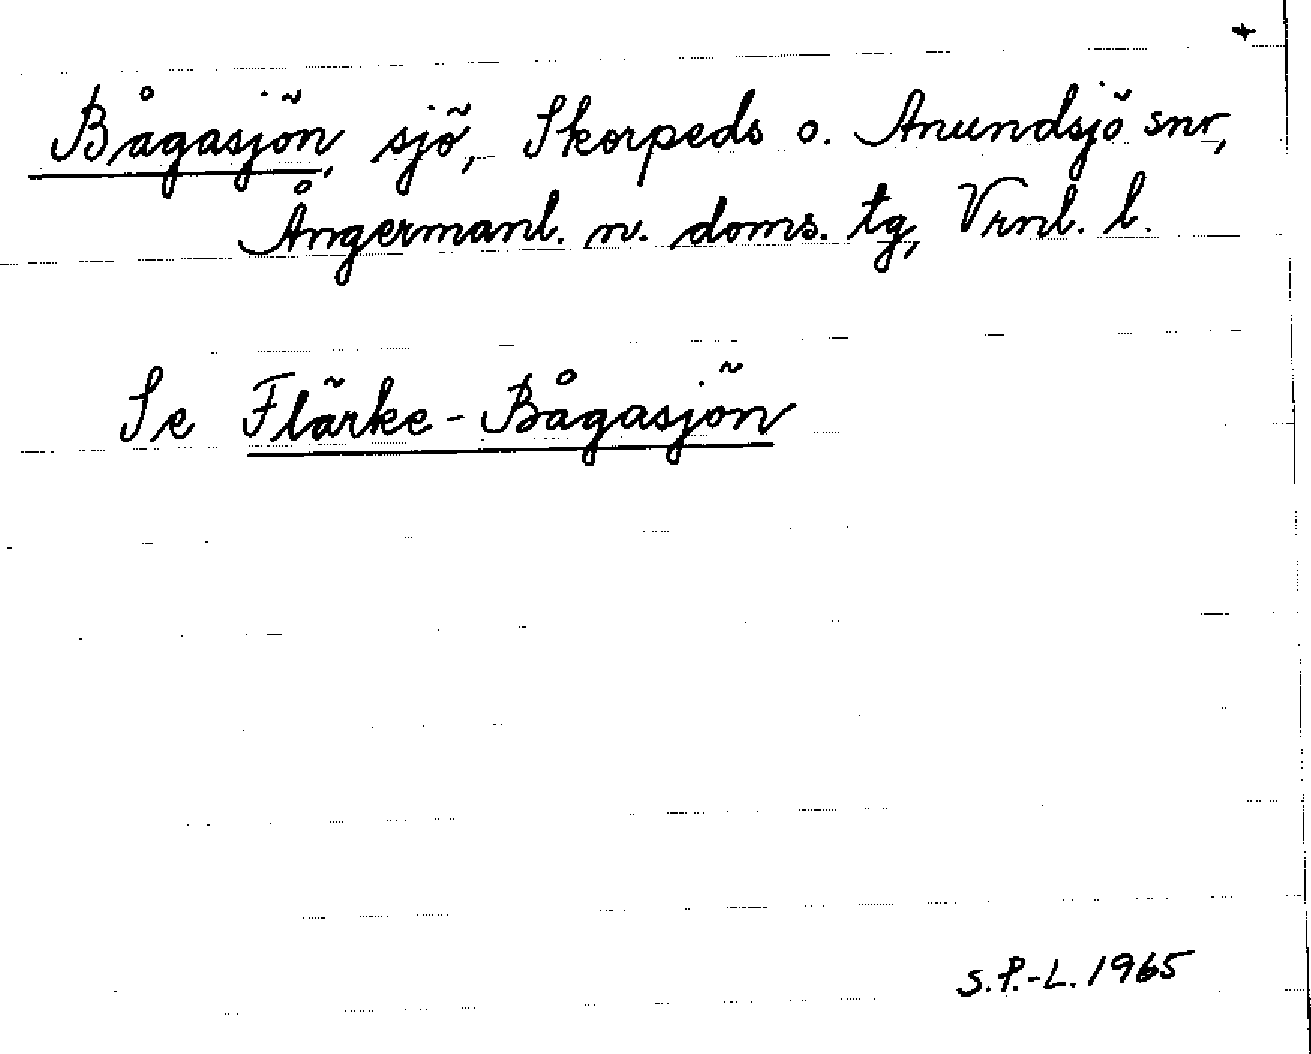 Bågasjön, sjö, Skorpeds o. Anundsjö snr,
Ångermanl. n. doms. tg, Vrnl. l.
Se Flärke-Bågasjön
S.P.-L. 1965